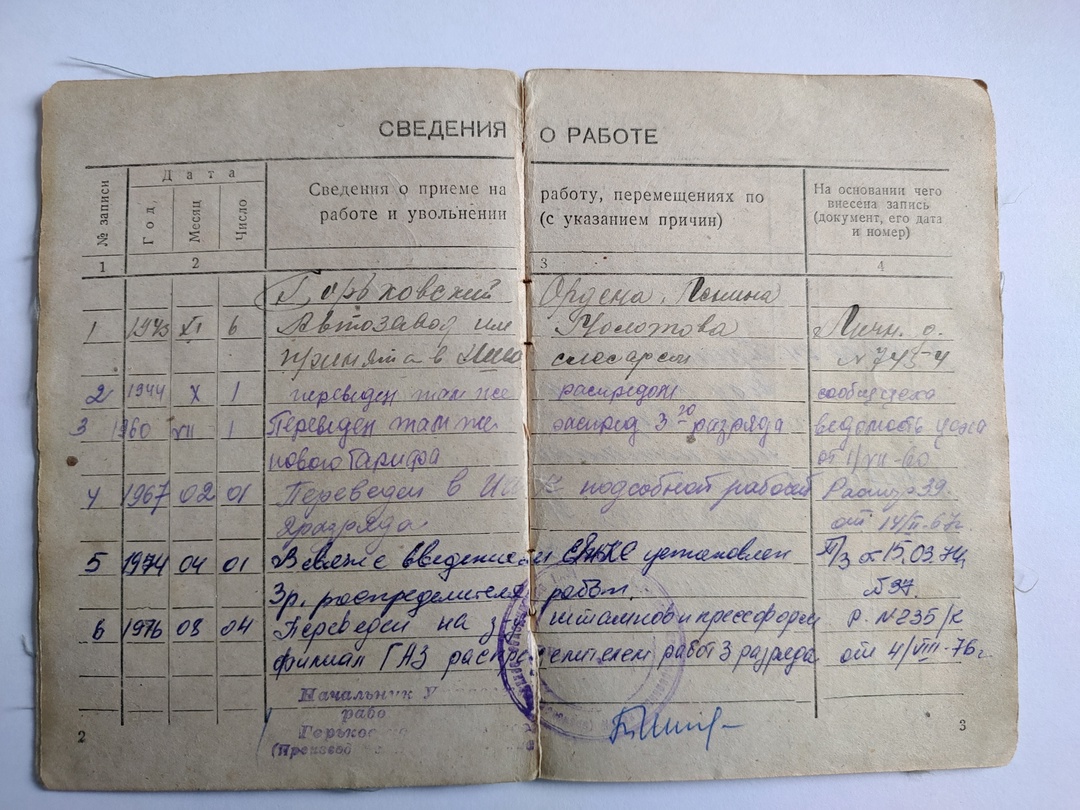 СВЕДЕНИЯ О РАБОТЕ
№ записи
Дата
Год
Месяц
Число
Сведения о приеме на работу, перемещениях по
работе и увольнении (с указанием причин)
На основании чего
внесена запись
(документ, его дата
и номер)
1 2 3 4
Горьковский Ордена Ленина
1 1943 XI 6 Автозавод им Молотова Личн. о.
принята в слесарем
2 1944 X 1 переведен там же
3 1960 XII 1 Переведен там же 3го разряда ведомость цеха
нового тарифа от 1/XII-60
4 1967 02 01 Переведен в подсобной рабочей 39
разряда от 14/II-67г.
5 1974 04 01 В связи с введением ЕТКС установлен 15.03.74
3р. распределитель работ. №97
6 1976 03 04 Переведен на штампов и прессформ Р. №235/к
филиал ГАЗ распределителем работ 3 разряда от 4/VIII-76г
Начальник
2 3